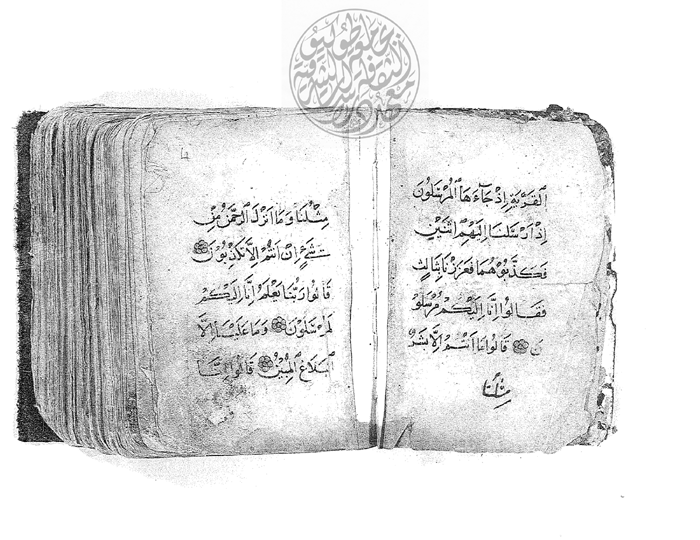 القَرْيَةِ اِذْ جَآءَهَا المُرْسَلُونَ
اِذْ اَرْسَلْنَا اِلَيْهِمُ اثْنَيْنِ
فَكَذَّبُوهُمَا فَعَزَّزْنَا بِثَالِثٍ
فَقَالُوا اِنَّا اِلَيْكُمْ مُرْسَلُو
نَ قَالُوا مَا اَنْتُمْ اِلَّا بَشَرٌ
مِثْلُنَا
مِثْلُنَا وَمَا اَنْزَلَ الرَّحْمٰنُ مِنْ
شَيْءٍ اِنْ اَنْتُمْ اِلَّا تَكْذِبُونَ
قَالُوا رَبُّنَا يَعْلَمُ اِنَّا اِلَيْكُمْ
لَمُرْسَلُونَ وَمَا عَلَيْنَا اِلَّا
البَلَاغُ المُبِينُ قَالُوا اِنَّا